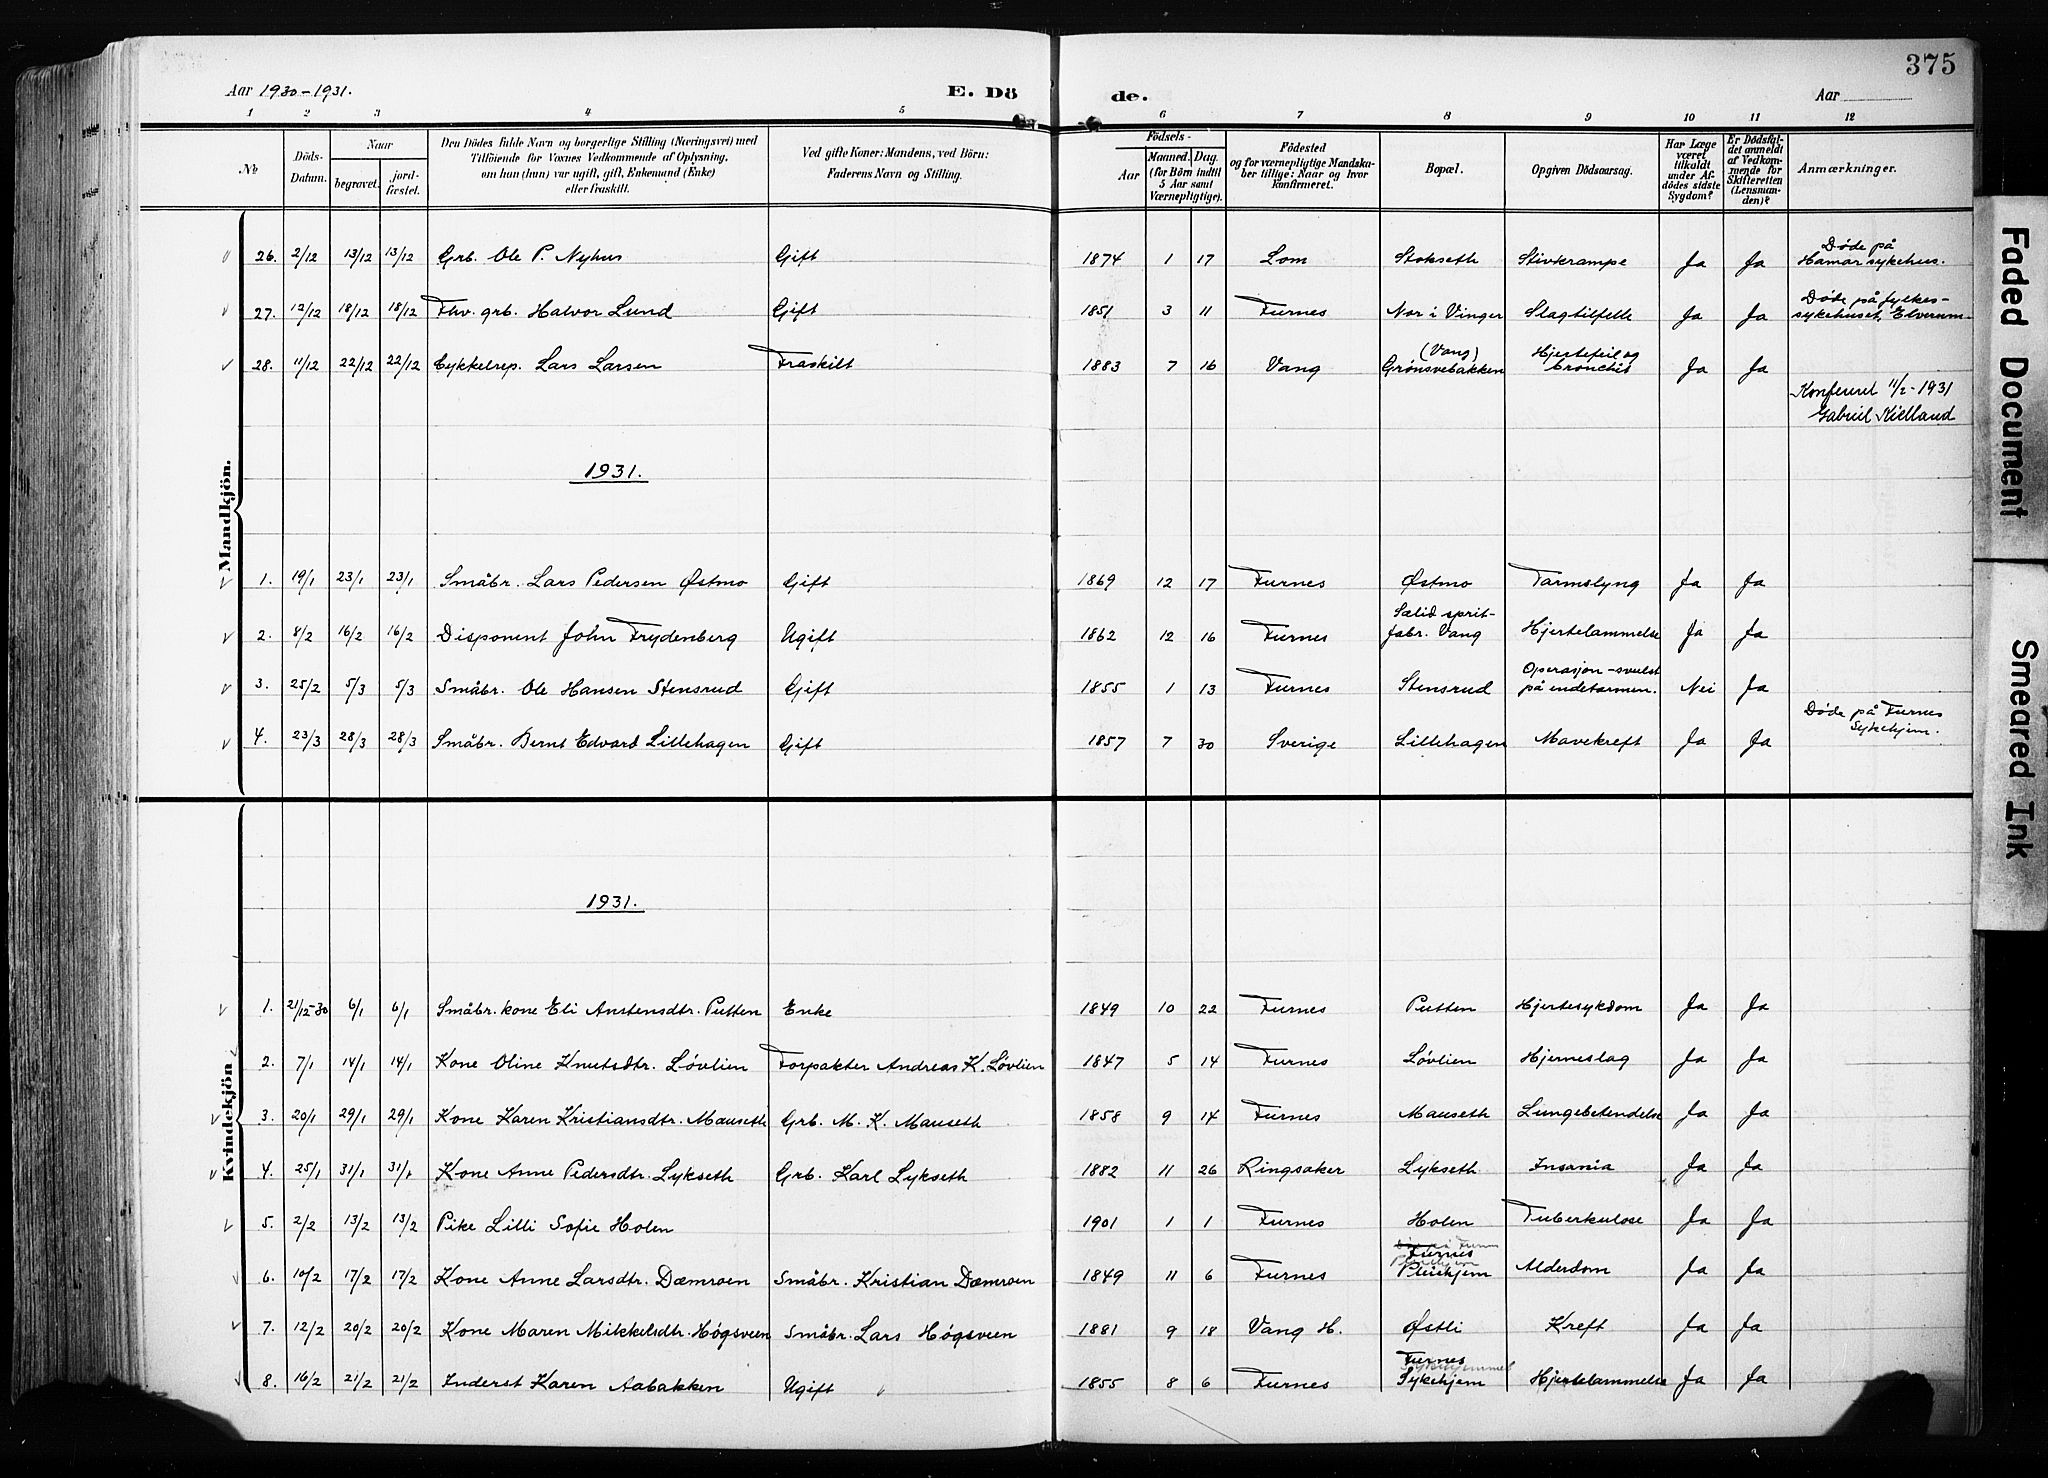 375
Aar 1930-1931.
E. Dö
de.
Aar
1 2 3 4 5 6 7 8 9 10 11 12
No
Döds-Datum.
Naar
begravet.
jord-fæstet.
Den Dödes fulde Navn og borgerlige Stilling (Næringsvei) med
Tilföiende for Voxnes Vedkommende af Oplysning,
om hun (hun) var ugift, gift, Enkemand (Enke)
eller fraskilt.
Ved gifte Koner: Mandens, ved Börn:
Faderens Navn og Stilling.
Födsels-
Aar
Maaned. Dag.
(for Börn indtil
5 Aar samt
Værnepligtige).
Födested
og for værnepligtige Mandska-
ber tillige: Naar og hvor
konfirmeret.
Bopæl.
Opgiven Dödsaarsag.
Har Læge
været
tilkaldt
under Af-
dödes sidste
Sygdom?
Er Dödsfal-
det anmeldt
af Vedkom-
mende for
Skifteretten
(Lensman-
den)?
Anmærkninger.
Mandkjön.
26. 2/12 13/12 13/12 Grb. Ole P. Nyhus Gift 1874 1 17 Lom Stokseth Stivkrampe Ja Ja Døde på Hamar sykehus.
27. 12/12 18/12 18/12 Fhv. grb. Halvor Lund Gift 1851 3 11 Furnes Nor i Vinger Slagtilfelle Ja Ja Døde på fylkes-sykehuset, Elverum
28. 11/12 22/12 22/12 Cykkelrep. Lars Larsen Fraskilt 1883 7 16 Vang (Vang) Grønsvebakken Hjertefeil og bronchit Ja Ja
Konfereret 11/2-1931
Gabriel Kielland
1931.
1. 19/1 23/1 23/1 Småbr. Lars Pedersen Østmo Gift 1869 12 17 Furnes Østmo Tarmslyng Ja Ja
2. 8/2 16/2 16/2 Disponent John Frydenberg Ugift 1862 12 16 Furnes Sælid sprit-fabr. Vang Hjertelammelse Ja Ja
3. 25/2 5/3 5/3 Småbr. Ole Hansen Stensrud Gift 1855 1 13 Furnes Stensrud Operasjon-svulst på endetarmen. Nei Ja
4. 23/3 28/3 28/3 Småbr. Bernt Edvard Lillehagen Gift 1857 7 30 Sverige Lillehagen Mavekreft Ja Ja Døde på Furnes Sykehjem.
Kvindekjön
1931.
1. 21/12-30 6/1 6/1 Småbr. kone Eli Anstensdtr. Putten Enke 1849 10 22 Furnes Putten Hjertesykdom Ja Ja
2. 7/1 14/1 14/1 Kone Oline Knutsdtr. Løvlien Forpakter Andreas K. Løvlien 1847 5 14 Furnes Løvlien Hjerneslag Ja Ja
3. 20/1 29/1 29/1 Kone Karen Kristiansdtr. Mauseth Grb. M. K. Mauseth 1858 9 14 Furnes Mauseth Lungebetendelse Ja Ja
4. 25/1 31/1 31/1 Kone Anne Pedersdtr. Lykseth Grb. Karl Lykseth 1882 11 26 Ringsaker Lykseth Insania Ja Ja
5. 2/2 13/2 13/2 Pike Lilli Sofie Holen 1901 1 1 Furnes Holen Tuberkulose Ja Ja
6. 10/2 17/2 17/2 Kone Anne Larsdtr. Dæmroen Småbr. Kristian Dæmroen 1849 11 6 Furnes Furnes Pleiehjem Alderdom Ja Ja
7. 12/2 20/2 20/2 Kone Maren Mikkelsdtr. Høgsveen Småbr. Lars Høgsveen 1881 9 18 Vang H. Østli Kreft Ja Ja
8. 16/2 21/2 21/2 Inderst Karen Aabakken Ugift 1855 8 6 Furnes Furnes Sykehjem Hjertelammelse Ja Ja
Faded Document
Smeared Ink